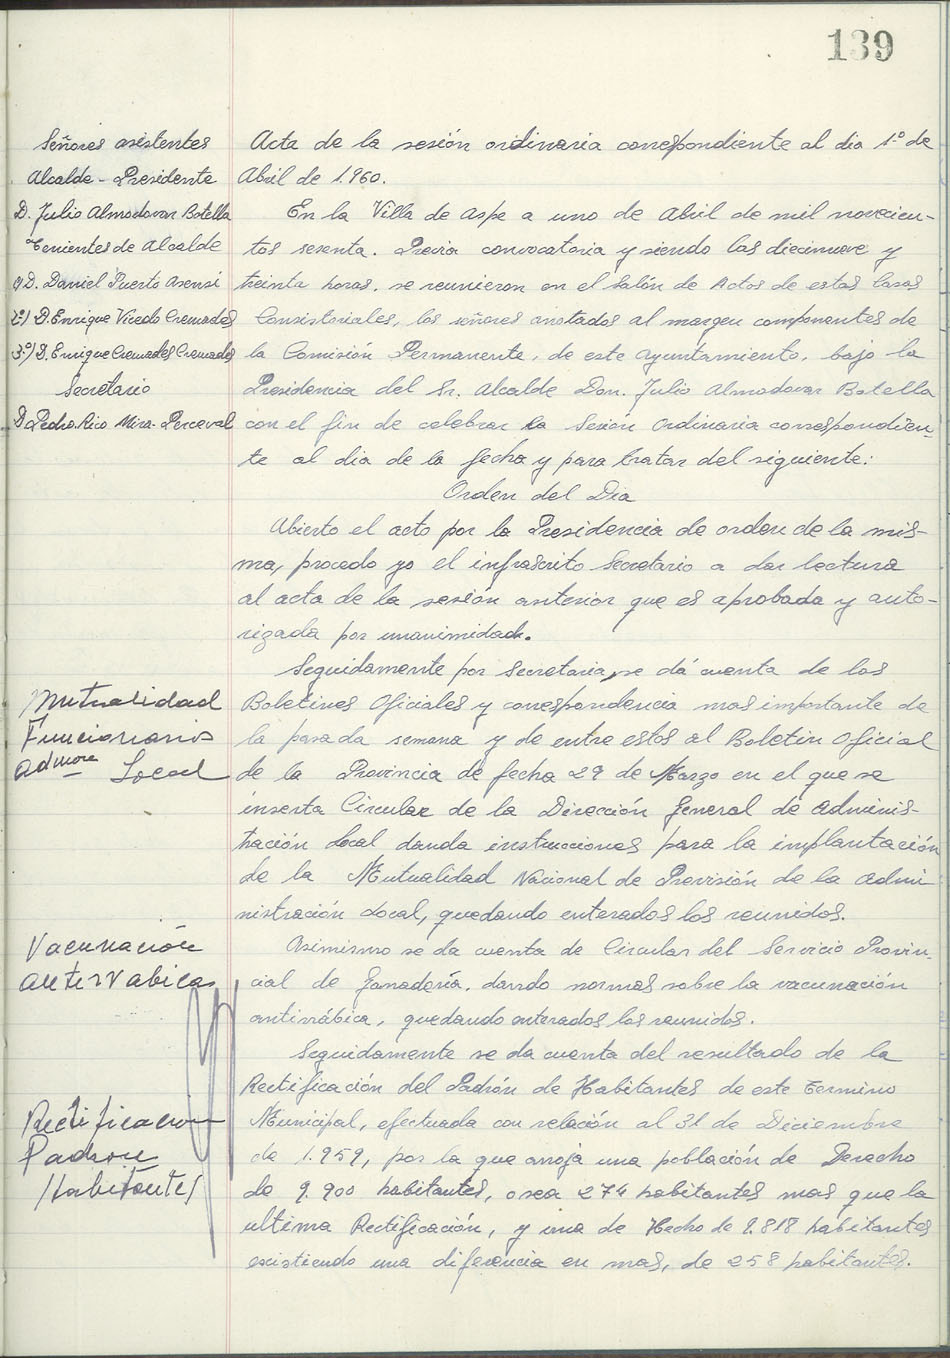 139
Señores asistentes
Alcalde - Presidente
D. Julio Almodovar Botella
Tenientes de Alcalde
1º) D. Daniel Puerto Asensi
2º) D. Enrique Vicedo Cremades
3º) D. Enrique Cremades Cremades
Secretario
D. Pedro Rico Mira-Perceval
Acta de la sesión ordinaria correspondiente al dia 1º de
Abril de 1.960.
En la Villa de Aspe a uno de Abril de mil novecien-
tos sesenta. Previa convocatoria y siendo las diecinueve y
treinta horas, se reunieron en el Salón de Actos de estas Casas
Consistoriales, los señores anotados al margen componentes de
la Comisión Permanente, de este Ayuntamiento, bajo la
Presidencia del Sr. Alcalde Don. Julio Almodovar Botella
con el fin de celebrar la Sesión Ordinaria correspondien-
te al dia de la fecha y para tratar del siguiente:
Orden del Dia
Abierto el acto por la Presidencia de orden de la mis-
ma, procedo yo el infrascrito Secretario a dar lectura
al acta de la sesión anterior que es aprobada y auto-
rizada por unanimidad.
Mutualidad
Funcionarios
Admon Local
Seguidamente por Secretaria, se dá cuenta de los
Boletines Oficiales y correspondencia mas importante de
la pasada semana y de entre estos al Boletin Oficial
de la Provincia de fecha 29 de Marzo en el que se
inserta Circular de la Dirección General de Adminis-
tración Local dando instrucciones para la implantación
de la Mutualidad Nacional de Previsión de la Admi
nistración Local, quedando enterados los reunidos.
Vacunación
antirrabica
Asimismo se da cuenta de Circular del Servicio Provin-
cial de Ganadería, dando normas sobre la vacunación
antirrábica, quedando enterados los reunidos.
Rectificacion
Padron
Habitantes
Seguidamente se da cuenta del resultado de la
Rectificación del Padrón de Habitantes de este Termino
Municipal, efectuada con relación al 31 de Diciembre
de 1.959, por la que arroja una población de Derecho
de 9.900 habitantes, o sea 274 habitantes mas que la
ultima Rectificación, y una de Hecho de 9.818 habitantes
existiendo una diferencia en mas, de 258 habitantes.